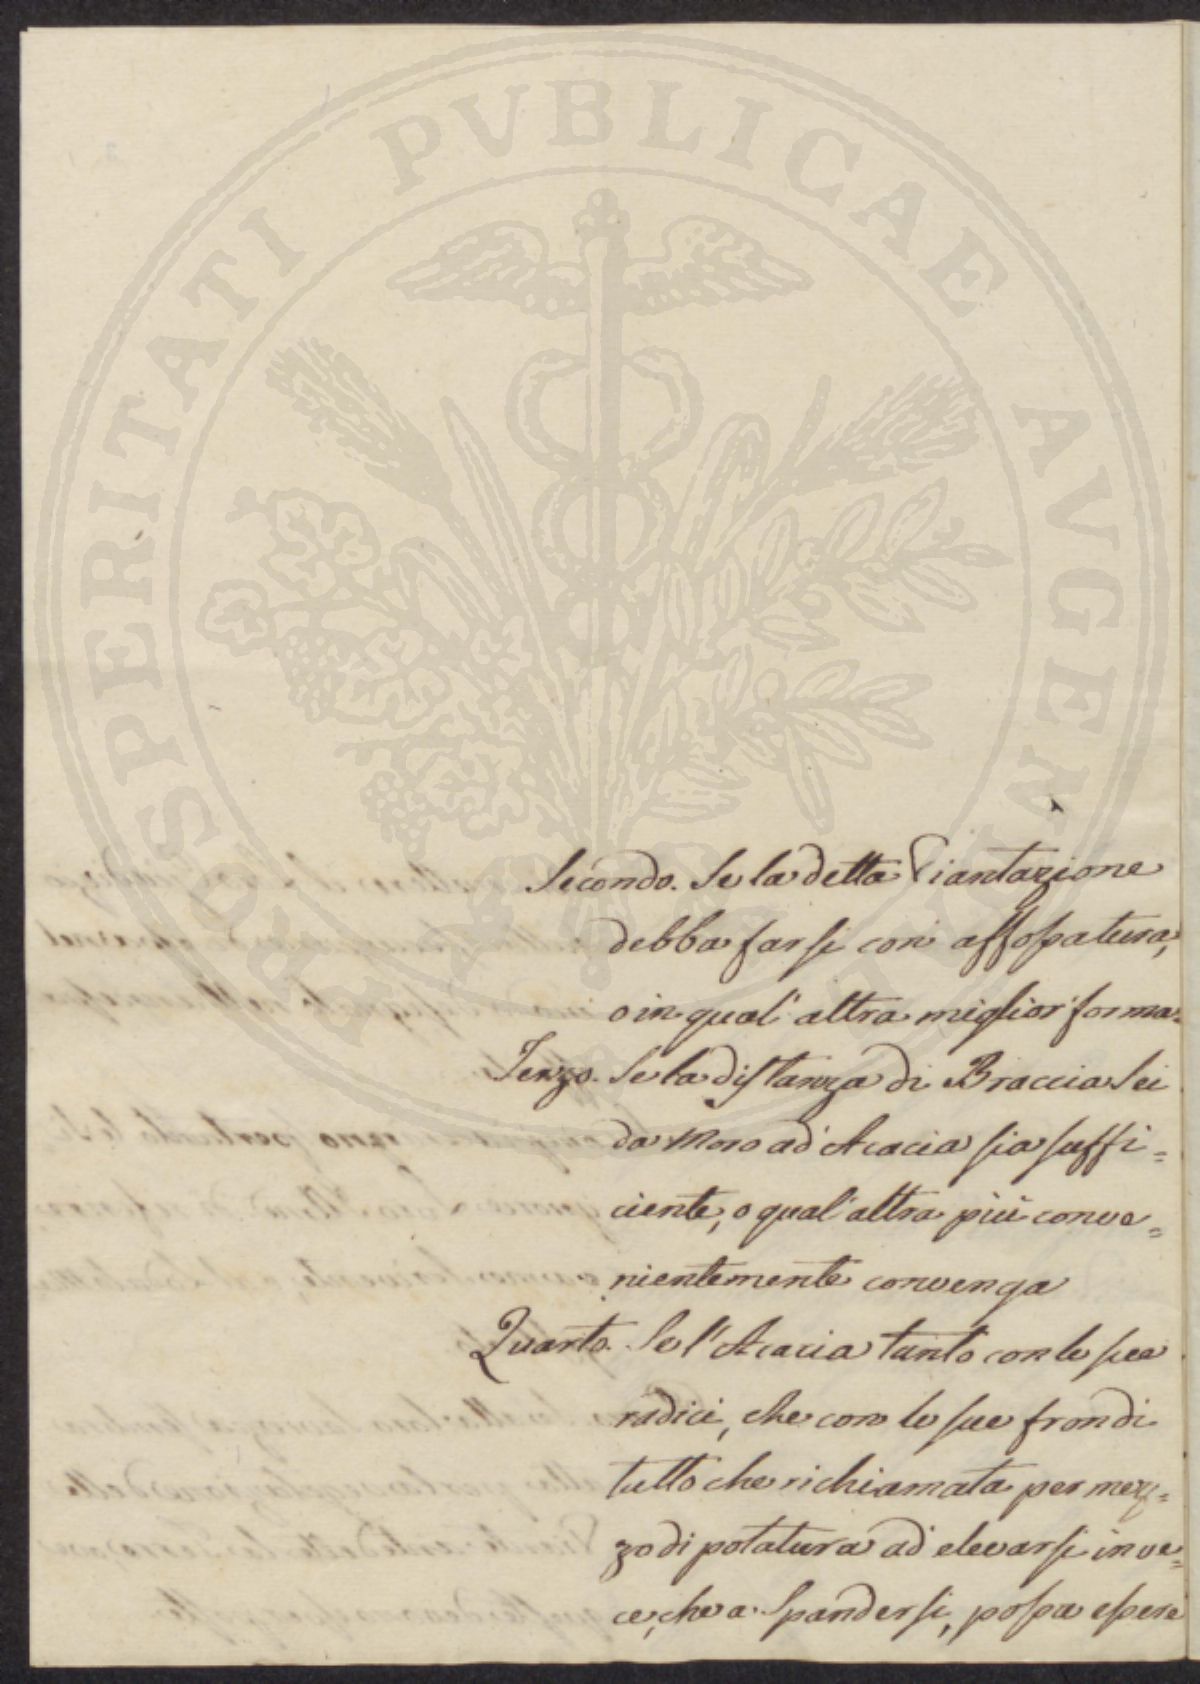 PROSPERITATI PVBLICAE AVGENDAE
Secondo. Se la detta Piantazione
debba farsi con affossatura,
o in qual' altra miglior forma.
Terzo. Se la distanza di Braccia Sei
da Moro ad' Acacia sia suffi=
ciente, o qual' altra più conve=
nientemente convenga
Quarto. Se l'Acacia tanto con le sue
radici, che con le sue frondi
tutto che richiamata per mez=
zo di potatura ad elevarsi in ve=
ce, che a Spandersi, possa essere